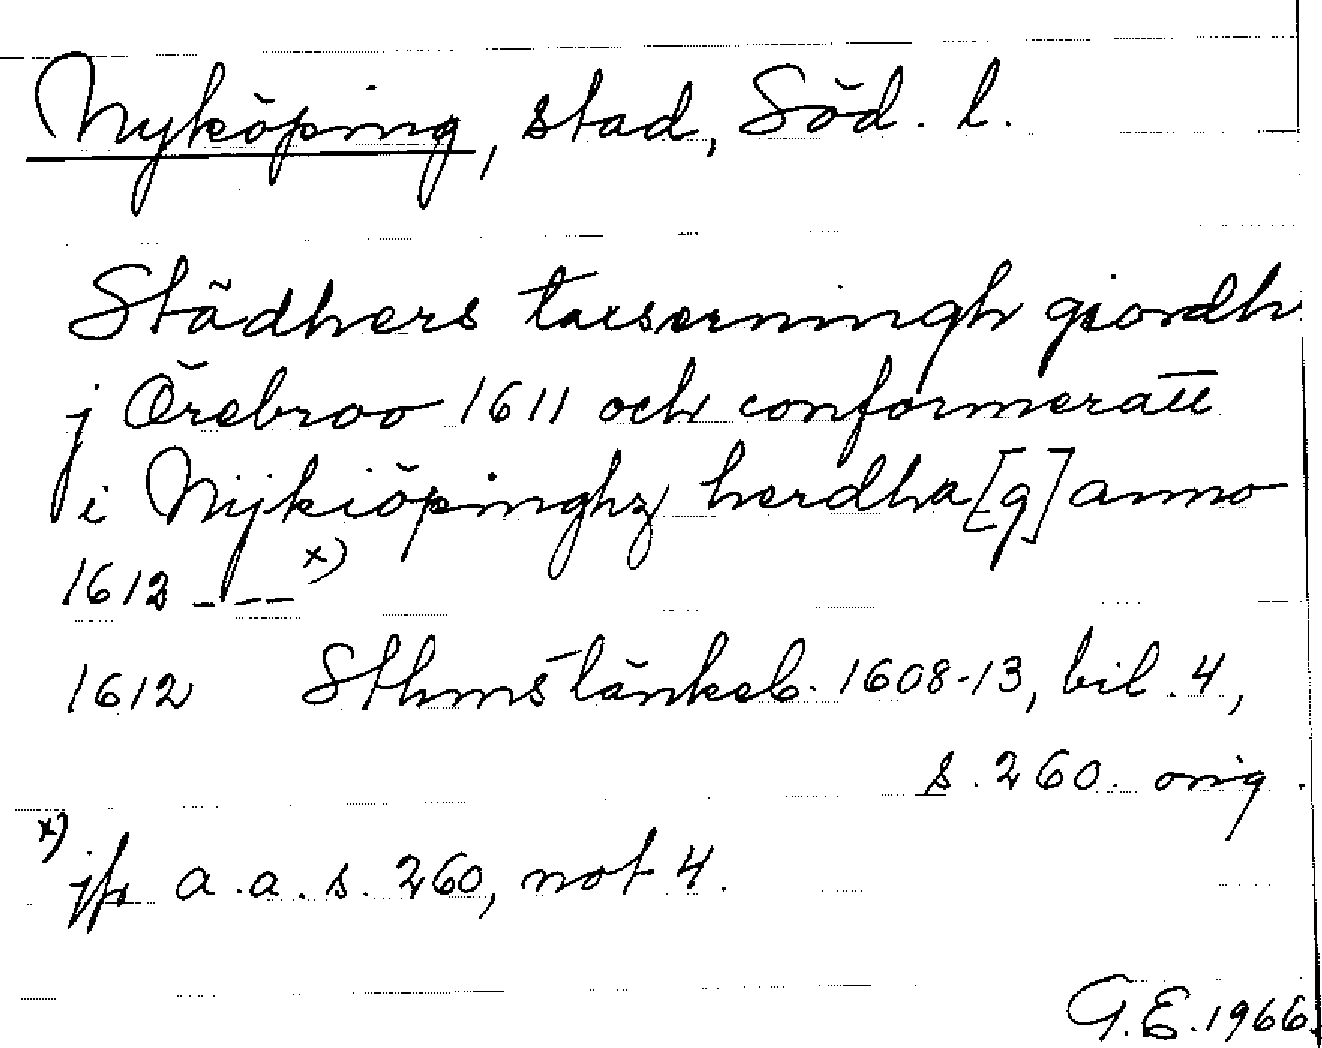 Nyköping, stad, Söd. l.
Städhers taxserningh giordh
j Örebroo 1611 och conformeratt
i Nijkiöpinghz herdha[g] anno
1612 - - - x)
1612 Sthms tänkeb. 1608-13, bil. 4,
s. 260. orig.
x) jfr a.a. s. 260, not 4.
G.E. 1966.